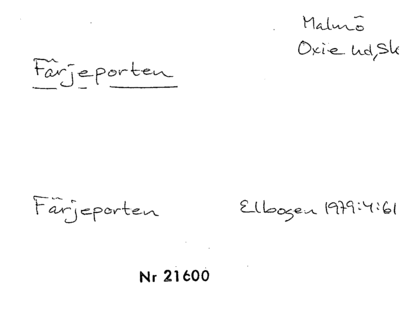 Malmö
Oxie hd, Sk
Färjeporten
Färjeporten Elbogen 1979:4:61
Nr 21600